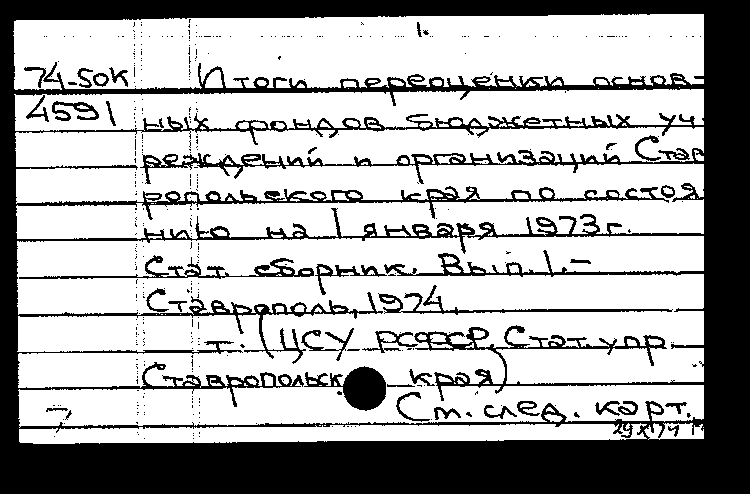 1.
74-5ок Итоги переоценки основ-
4591 ных фондов бюджетных уч
реждений и организаций Став
ропольского края по состоя
нию на 1 января 1973г.
Стат. сборник. Вып. 1.-
Ставрополь, 1974.
т. (ЦСУ РСФСР. Стат. упр.
Ставропольск края).
7 См. след. карт.